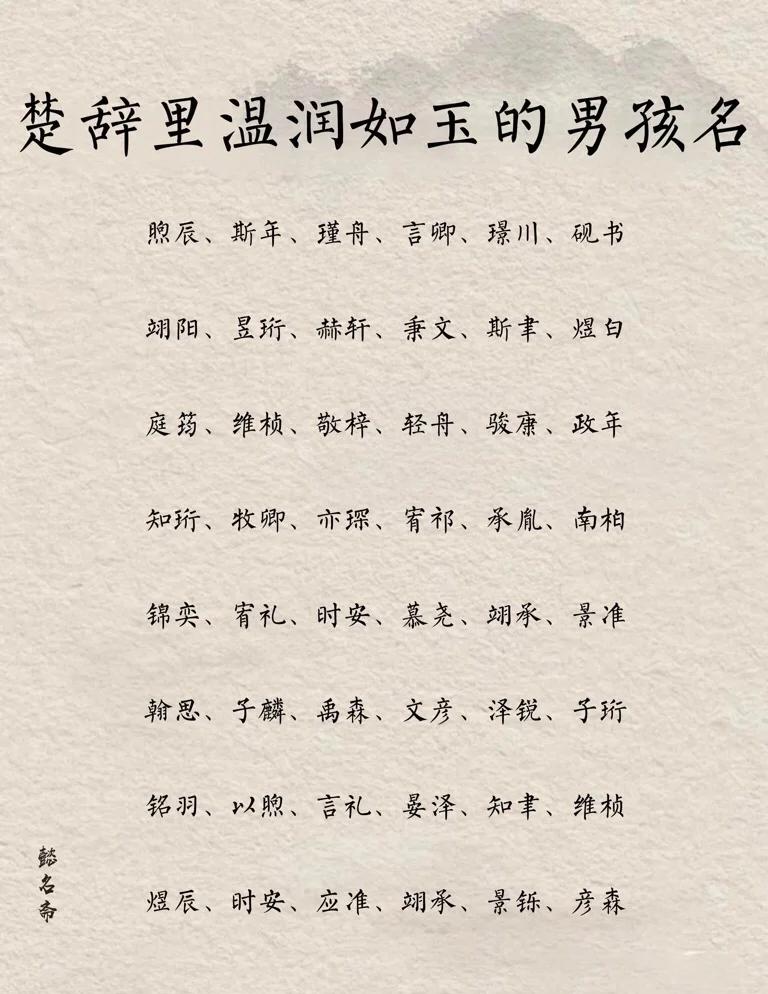 楚辞里温润如玉的男孩名
煦辰、斯年、瑾舟、言卿、璟川、砚书
翊阳、昱珩、赫轩、秉文、斯聿、煜白
庭筠、维桢、敬梓、轻舟、骏康、政年
知珩、牧卿、亦琛、宥祁、承胤、南柏
锦奕、宥礼、时安、慕尧、翊承、景淮
翰思、子麟、禹森、文彦、泽锐、子珩
铭羽、以煦、言礼、晏泽、知聿、维桢
煜辰、时安、应淮、翊承、景铄、彦森
懿名斋